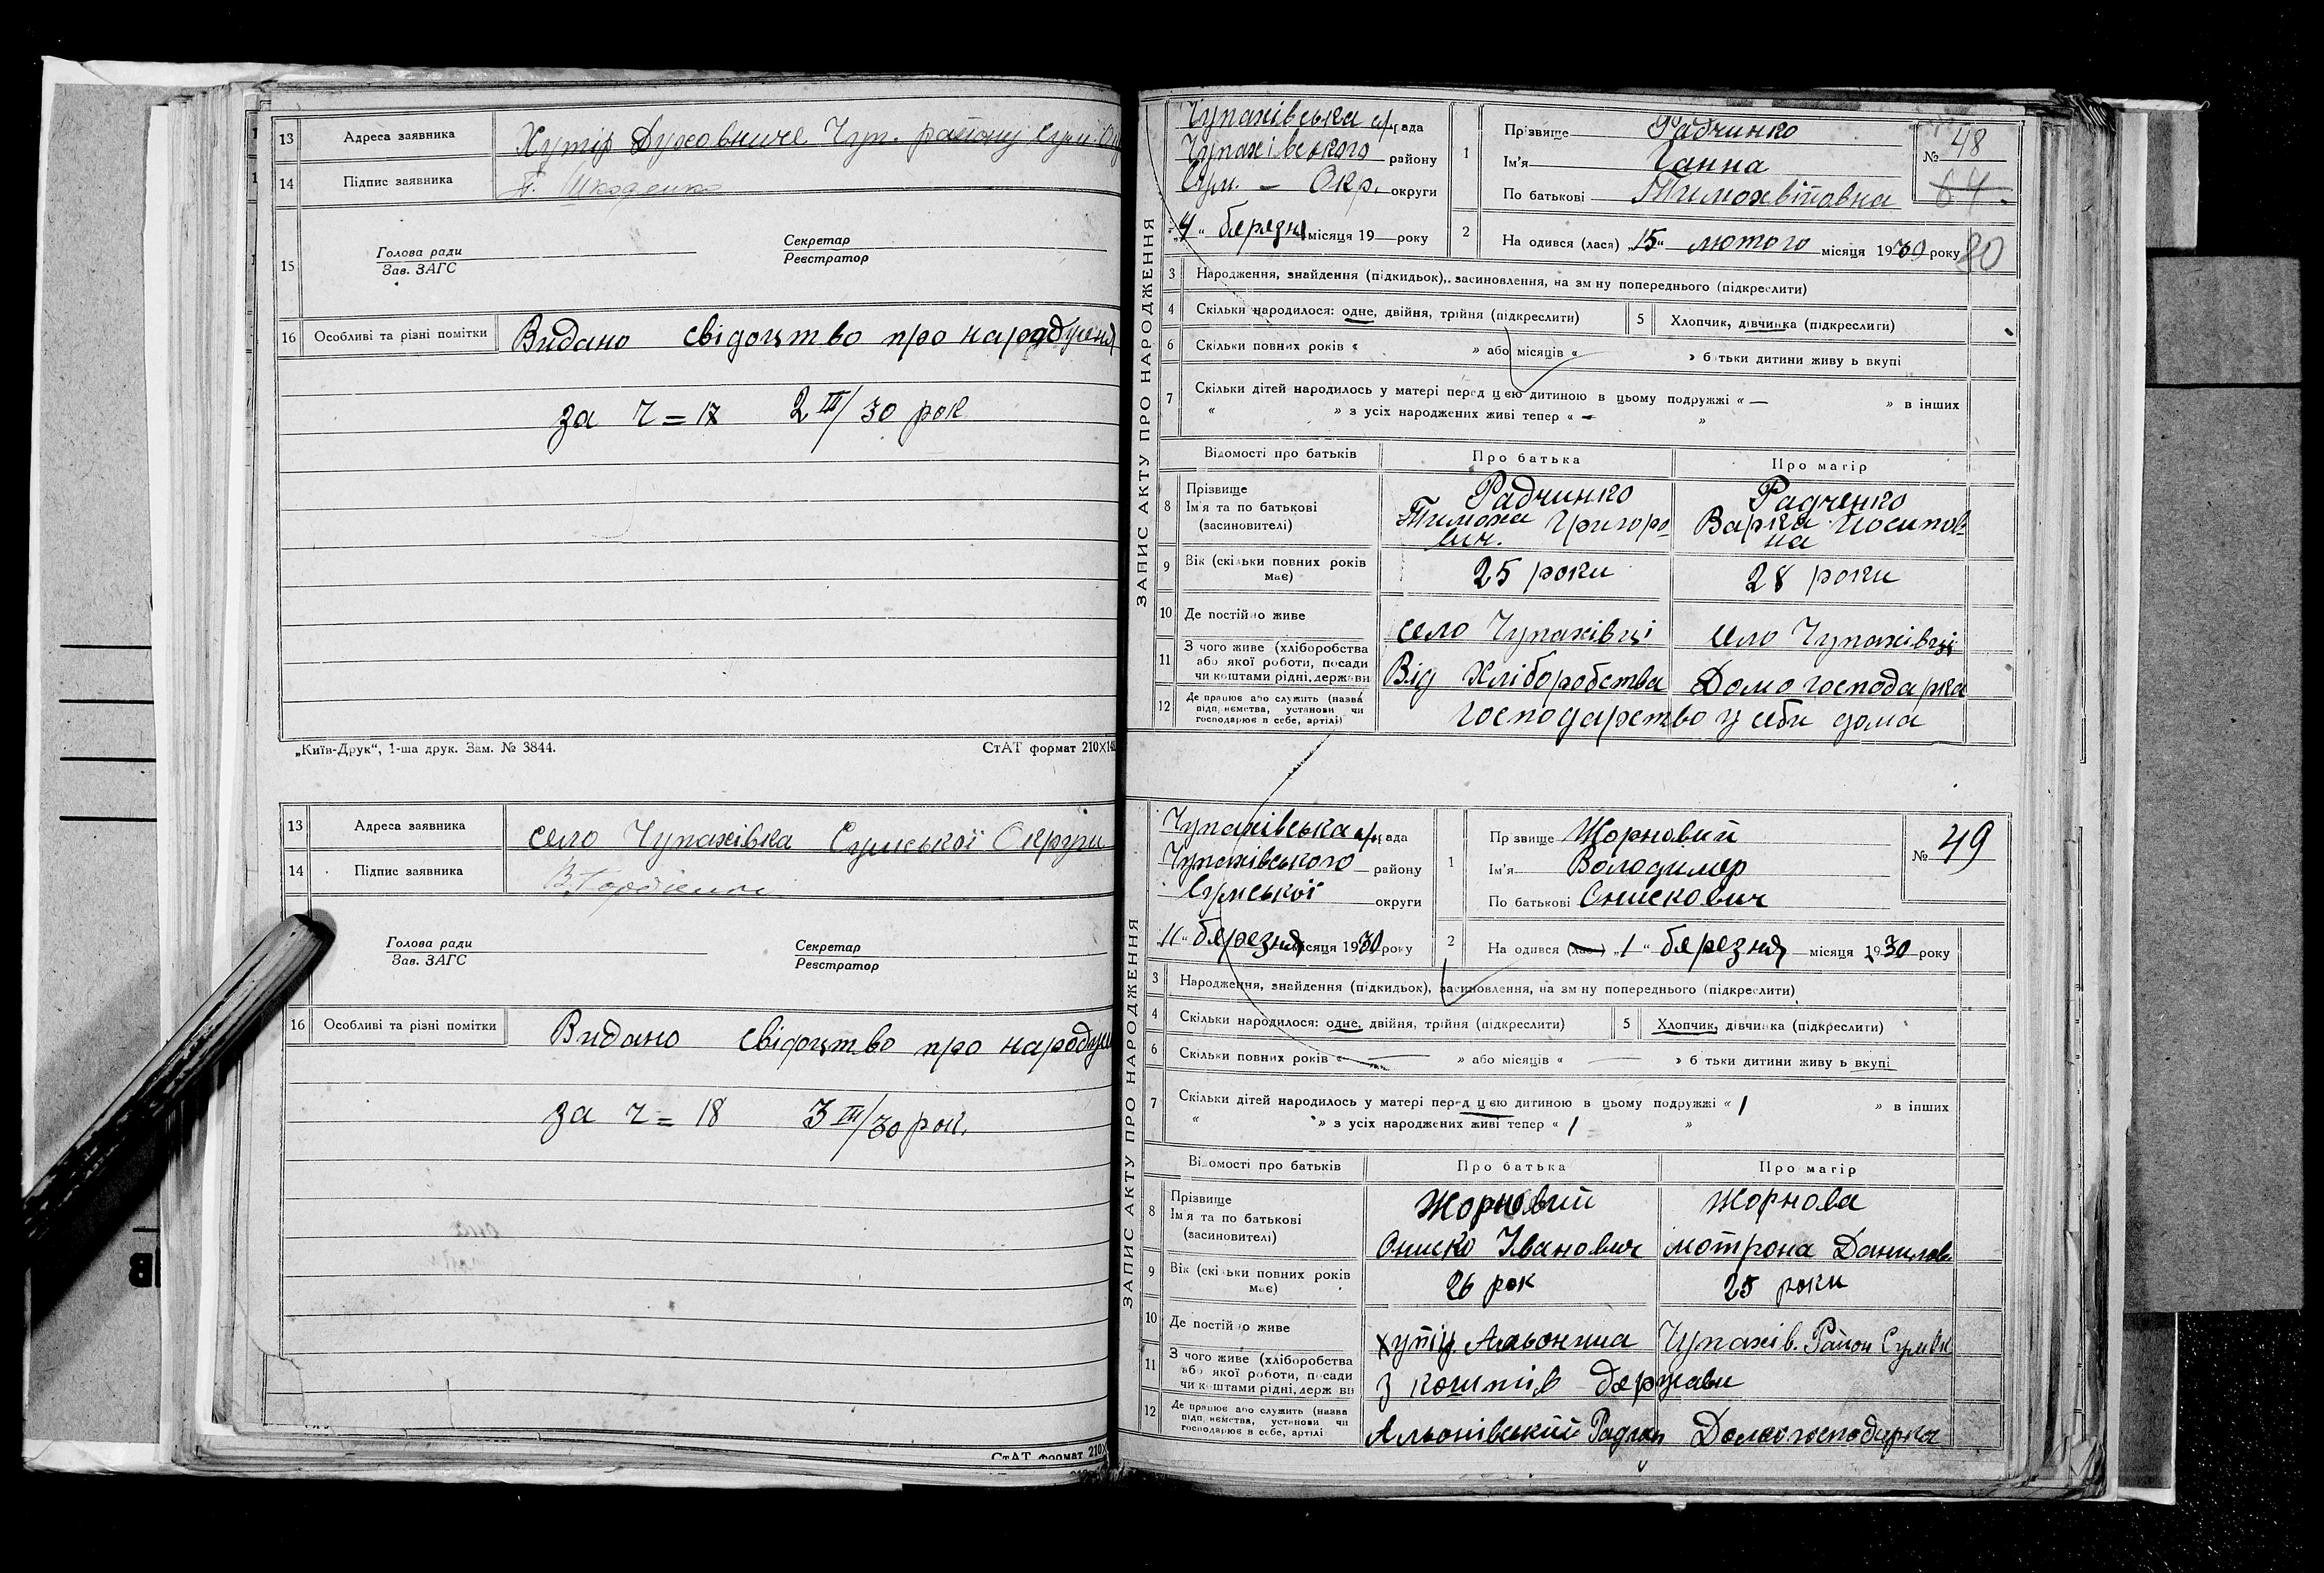 13 Адреса заявника Хутір Духовниче Чуп. району Сум.
14 Підпис заявника П. Шкоденко
15 Голова ради Секретар
Зав. ЗАГС Реєстратор
16 Особливі та різні помітки Видано свідоцтво про народження
за ч = 17 2 III/30 рок
„Київ-Друк“, 1-ша друк. Зам. № 3844. СтАТ формат 210×148
13 Адреса заявника село Чупахівка Сумської Округи
14 Підпис заявника В. Гордієнко
Голова ради Секретар
Зав. ЗАГС Реєстратор
16 Особливі та різні помітки Видано свідоцтво про народжен
за ч = 18 3 III/30 рок.
СтАТ формат 210×
ЗАПИС АКТУ ПРО НАРОДЖЕННЯ
Чупахівська с/рада
Чупахівського району
Сум. – Окр. округи
„4“ березня місяця 19 року
1 Прізвище Радчинко
Ім'я Ганна
По батькові Тимохвіївна
№ 48
64
2 На одився (лася) „15“ лютого місяця 1930 року
80
3 Народження, знайдення (підкидьок), засиновлення, на зміну попереднього (підкреслити)
4 Скільки народилося: одне, двійня, трійня (підкреслити) 5 Хлопчик, дівчинка (підкреслити)
6 Скільки повних років « » або місяців « » батьки дитини живуть вкупі
7 Скільки дітей народилось у матері перед цією дитиною в цьому подружжі « — » в інших
« » з усіх народжених живі тепер « – »
Відомості про батьків Про батька Про матір
8 Прізвище Радчинко Радченко
Ім'я та по батькові Тимоха Григоро- Варка Йосипов-
(засиновителі) вич. на
9 Вік (скільки повних років має) 25 роки 28 роки
10 Де постійно живе село Чупахівці село Чупахівці
11 З чого живе (хліборобства
або якої роботи, посади
чи коштами рідні, держави Від Хліборобства Домогосподарка
12 Де працює або служить (назва
підприємства, установи чи
господарює в себе, артілі) господарство у себи дома
ЗАПИС АКТУ ПРО НАРОДЖЕННЯ
Чупахівська с/рада
Чупахівського району
Сумської округи
„11“ березня місяця 1930 року
1 Пр звище Жорновий
Ім'я Володимер
По батькові Онискович
№ 49
2 На одився (лася) „1“ березня місяця 1930 року
3 Народження, знайдення (підкидьок), засиновлення, на зміну попереднього (підкреслити)
4 Скільки народилося: одне, двійня, трійня (підкреслити) 5 Хлопчик, дівчинка (підкреслити)
6 Скільки повних років « — » або місяців « — » батьки дитини живуть вкупі
7 Скільки дітей народилось у матері перед цією дитиною в цьому подружжі « 1 » в інших
« » з усіх народжених живі тепер « 1 »
Відомості про батьків Про батька Про матір
8 Прізвище Жорновий Жорнова
Ім'я та по батькові
(засиновителі) Ониско Іванович мотрона Данилов
9 Вік (скільки повних років має) 26 рок 25 роки
10 Де постійно живе хутір Альонина Чупахів. Район
11 З чого живе (хліборобства
або якої роботи, посади
чи коштами рідні, держ ви З коштів держави
12 Де працює або служить (назва
підприємства, установи чи
господарює в себе, артілі Альонівський Радгосп Домогосподарка